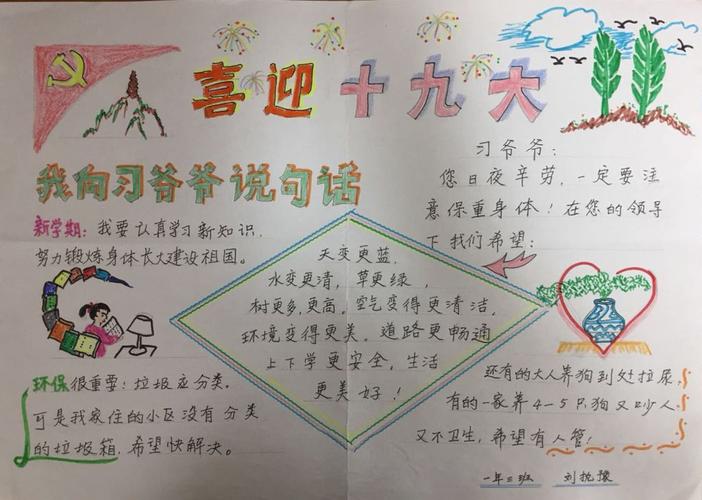 喜迎十九大
我向习爷爷说句话
习爷爷：
您日夜辛劳，一定要注
意保重身体！在您的领导
下我们希望：
新学期：我要认真学习新知识，
努力锻炼身体长大建设祖国。
天变更蓝，
水变更清，草更绿，
树更多，更高。空气变得更清洁，
环境变得更美。道路更畅通
上下学更安全，生活
更美好！
环保很重要：垃圾应分类。
可是我家住的小区没有分类
的垃圾箱，希望快解决。
还有的大人养狗到处拉尿，
有的一家养4-5只，狗又吵人
又不卫生，希望有人管！
一年三班 刘抗豫